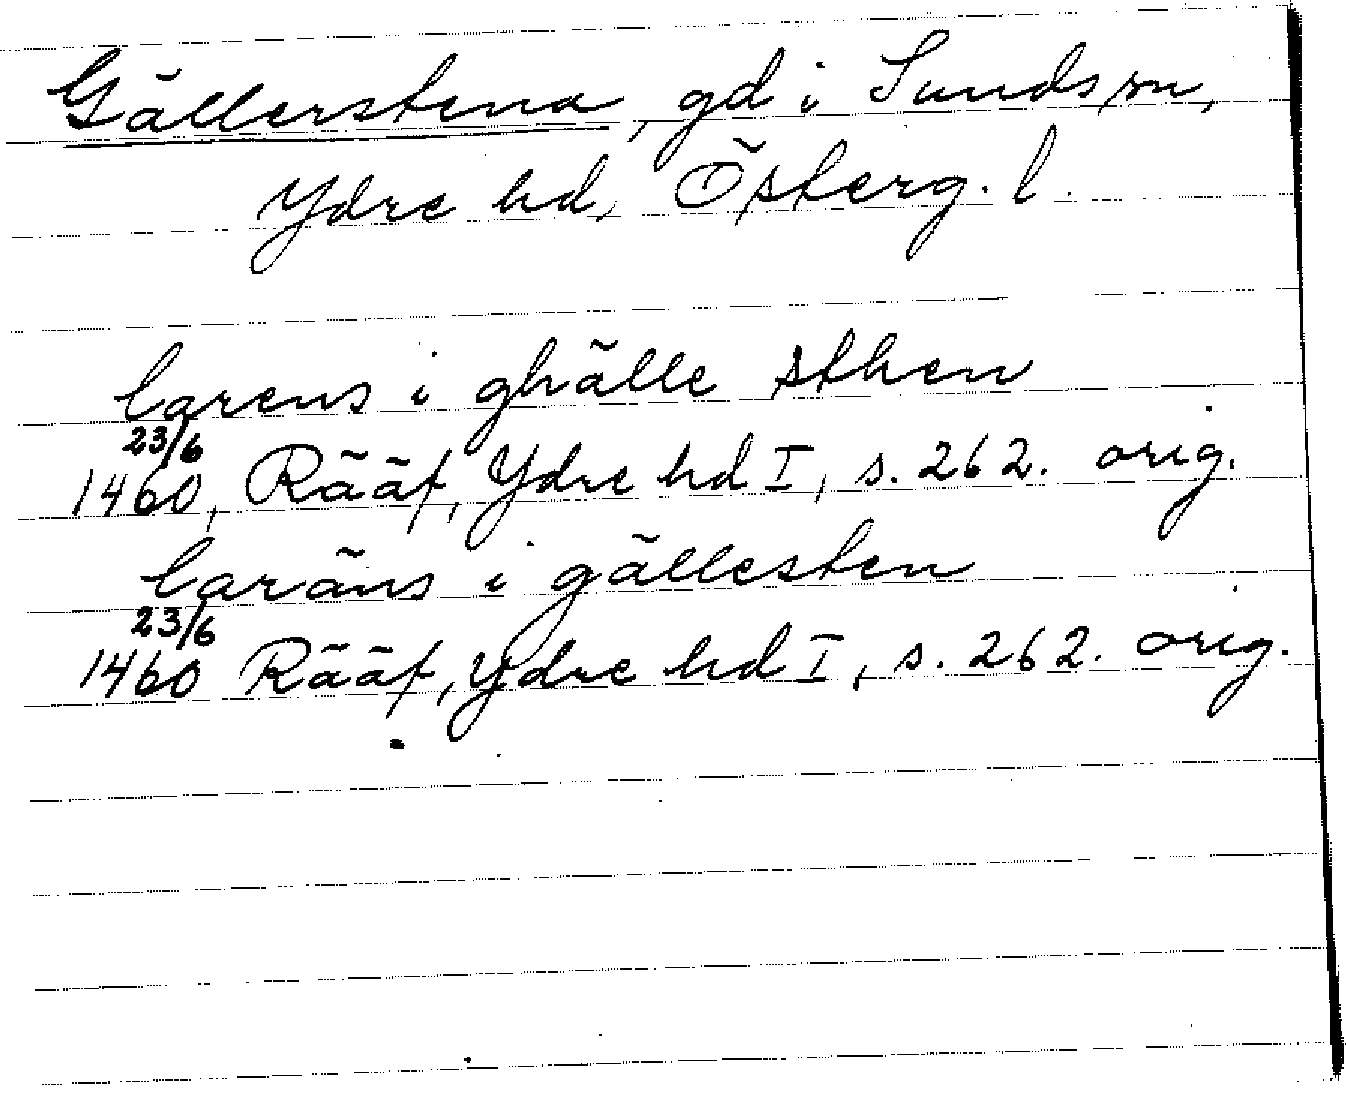 Gällerstena, gd i Sunds sn,
Ydre hd, Österg. l.
larens i ghälle sthen
23/6
1460, Rääf, Ydre hd I, s. 262. orig.
laräns i gällesten
23/6
1460 Rääf, Ydre hd I, s. 262. orig.